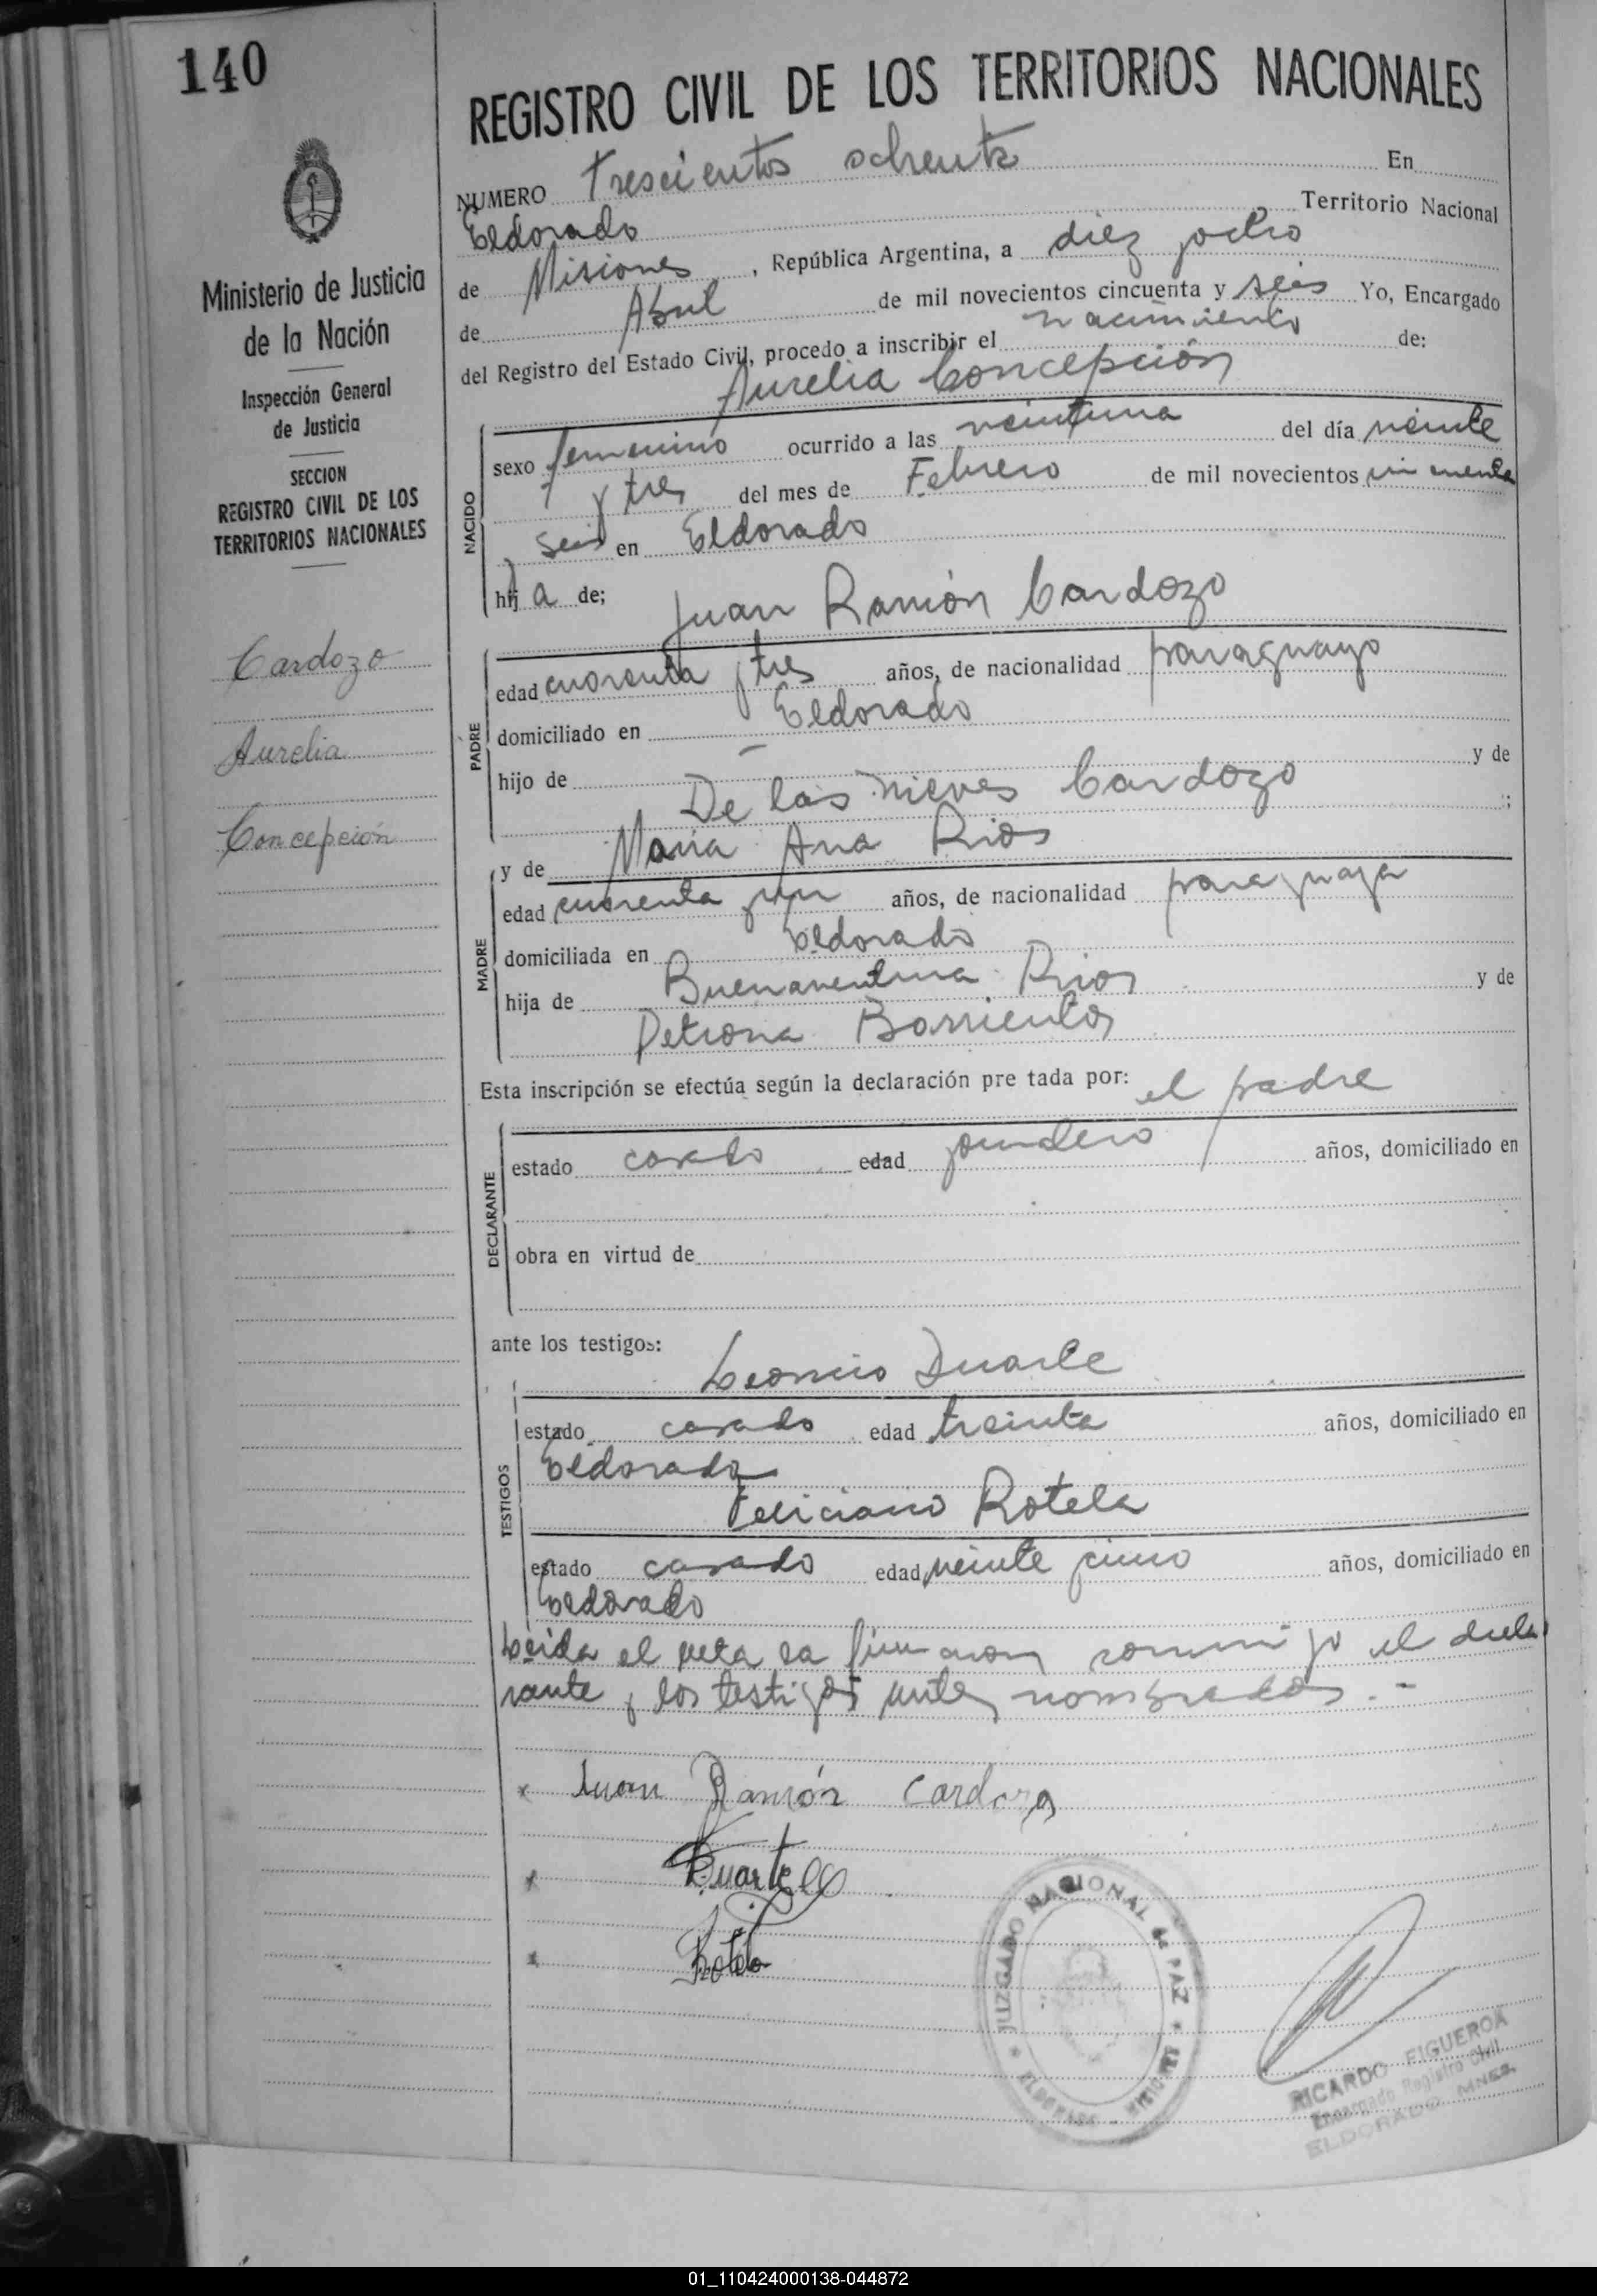 140
REGISTRO CIVIL DE LOS TERRITORIOS NACIONALES
NUMERO Trescientos ochenta En
Eldorado Territorio Nacional
de Misiones, República Argentina, a diez y ocho
de Abril de mil novecientos cincuenta y seis Yo, Encargado
del Registro del Estado Civil, procedo a inscribir el nacimiento de:
Aurelia Concepción
Ministerio de Justicia
de la Nación
Inspección General
de Justicia
SECCION
REGISTRO CIVIL DE LOS
TERRITORIOS NACIONALES
Cardozo
Aurelia
Concepción
NACIDO
sexo femenino ocurrido a las veintiuna del día veinte
y tres del mes de Febrero de mil novecientos cincuenta
y seis en Eldorado
hij a de; Juan Ramón Cardozo
PADRE
edad cuarenta y tres años, de nacionalidad paraguayo
domiciliado en Eldorado
hijo de — y de
De las Nieves Cardozo ;
y de María Ana Rios
MADRE
edad cuarenta y un años, de nacionalidad paraguaya
domiciliada en Eldorado
hija de Buenaventura Rios y de
Petrona Barrientos
Esta inscripción se efectúa según la declaración pre tada por: el padre
DECLARANTE
estado casado edad años, domiciliado en
obra en virtud de
ante los testigos:
Leoncio Duarte
TESTIGOS
estado casado edad treinta años, domiciliado en
Eldorado
Feliciano Rotela
estado casado edad veinte y cinco años, domiciliado en
Eldorado
Leida el acta la firmaron conmigo el decla
rante y los testigos antes nombrados. -
x Juan Ramón Cardozo
x Duarte
x Rotela
JUZGADO NACIONAL de PAZ * ELDORADO - MISIONES *
RICARDO FIGUEROA
Encargado Registro Civil
ELDORADO MNES.
01_110424000138-044872